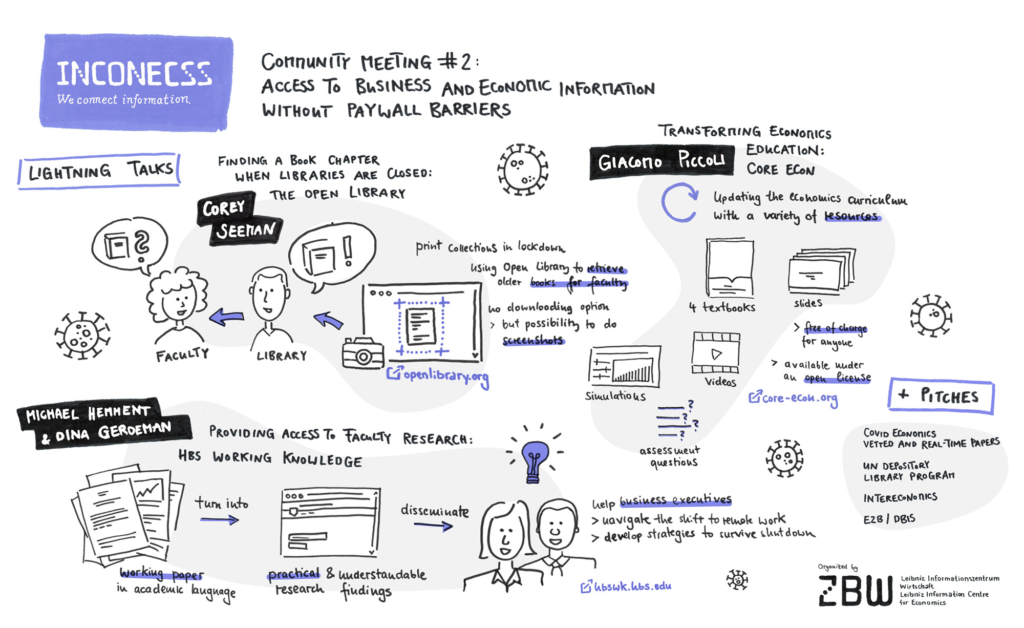 INCONECSS
We connect information.
COMMUNITY MEETING #2:
ACCESS TO BUSINESS AND ECONOMIC INFORMATION
WITHOUT PAYWALL BARRIERS
LIGHTNING TALKS
FINDING A BOOK CHAPTER
WHEN LIBRARIES ARE CLOSED:
THE OPEN LIBRARY
COREY
SEEMAN
?
!
FACULTY
LIBRARY
print collections in lockdown
using Open Library to retrieve
older books for faculty
no downloading option
> but possibility to do
screenshots
openlibrary.org
TRANSFORMING ECONOMICS
EDUCATION:
CORE ECON
GIACOMO PICCOLI
Updating the economics curriculum
with a variety of resources
4 textbooks
slides
> free of charge
for anyone
> available under
an open license
simulations
videos
core-econ.org
?
?
?
?
assessment
questions
MICHAEL HEMMENT
& DINA GERDEMAN
PROVIDING ACCESS TO FACULTY RESEARCH:
HBS WORKING KNOWLEDGE
turn into
disseminate
working paper
in academic language
practical & understandable
research findings
help business executives
> navigate the shift to remote work
> develop strategies to survive shutdown
hbswk.hbs.edu
+ PITCHES
COVID ECONOMICS
VETTED AND REAL-TIME PAPERS
UN DEPOSITORY
LIBRARY PROGRAM
INTERECONOMICS
EZB / DBIS
Organized by
ZBW
Leibniz Informationszentrum
Wirtschaft
Leibniz Information Centre
for Economics